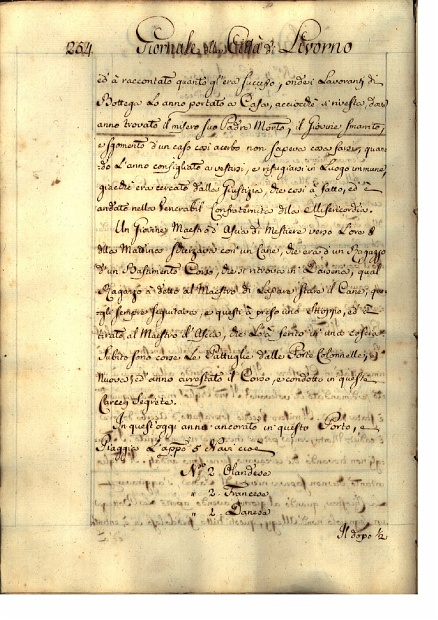 264 Giornale della Città di Livorno
ed à raccontato quanto gl'era sucesso, onde i Lavoranti di
Bottega Lo anno portato a Casa, acciocchè si rivesta, dove
anno trovato il misero suo Padre Morto, il Giovine smarito,
e sgomento d'un caso così acerbo non sapeva cosa farsi, quan-
do L'anno consigliato a vestirsi, e rifugiarsi in Luogo immune,
giacchè era cercato dalla Giustizia, che così à fatto, ed è
andato nella Venerabil Confraternita della Misericordia.
Un Giovine Maestro d'Ascia di Mestiere verso L'ora 8
della Matina scherzava con un Cane, che era d'un Ragazzo
d'un Bastimento Corso, che si ritrova in Darsena, qual
Ragazzo à detto al Maestro di Lasciare stare il Cane, que-
gli sempre seguitava, e questi à preso uno ed à
tirato al Maestro d'Ascia, che L'à ferito in una coscia.
Subito sono corse Le Pattuglie delle Porte Colonnelle, e
Nuova, ed anno arrestato il Corso, e condotto in queste
Carceri Segrete.
In quest'oggi anno ancorato in questo Porto, e
Piaggia L'app.o 6 Navi cioè
N.o 2 Olandese
" 2 Francese
" 2 Danese
Il dopo